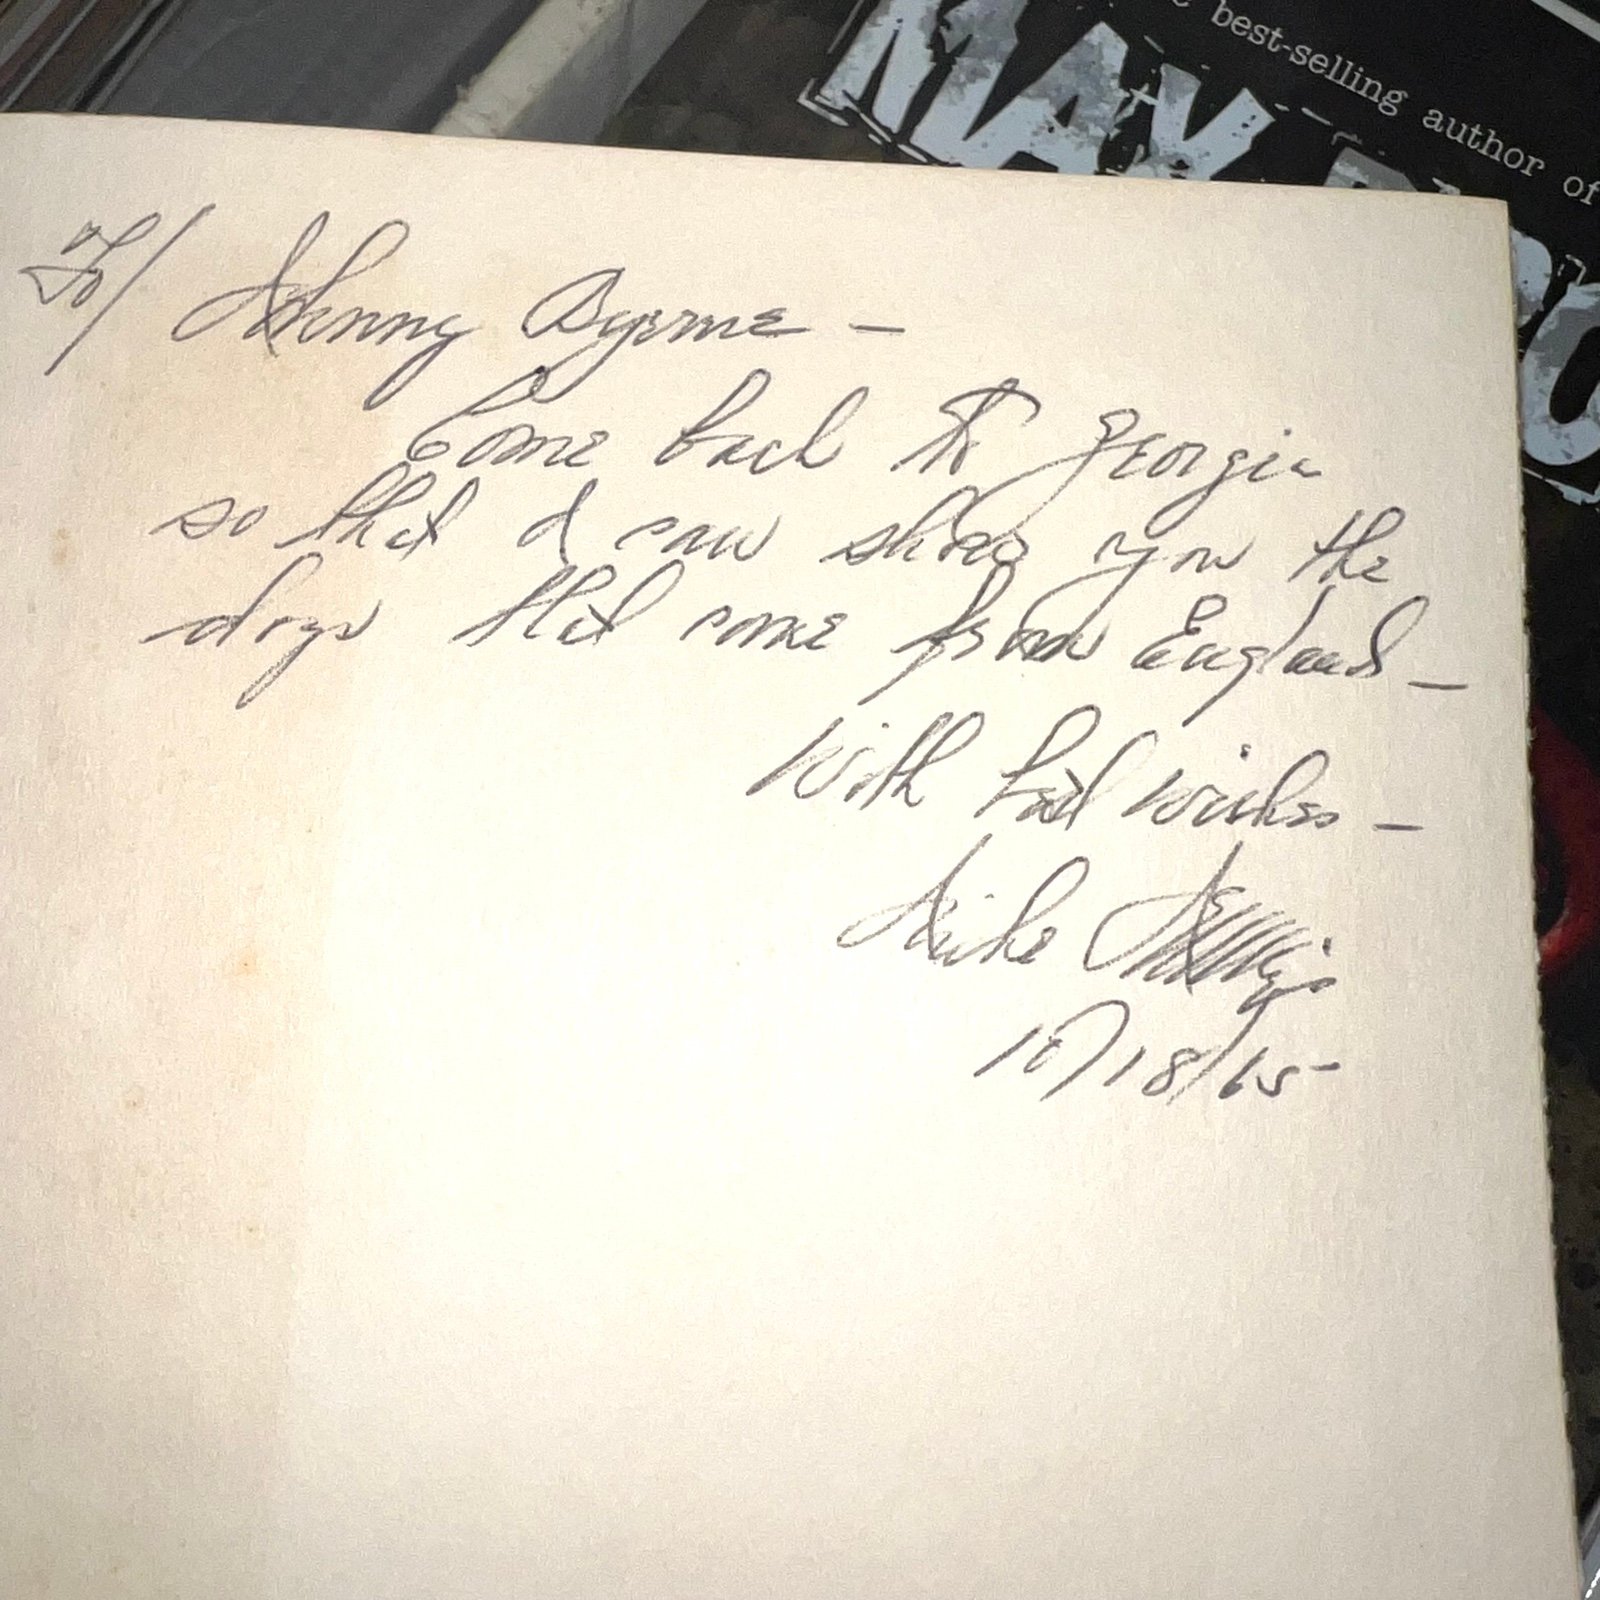 best-selling author of
MAX
To/ Johnny Byrne –
Come back to Georgia
so that I can show you the
dogs that come from England –
With best wishes –
Mike
10/18/65